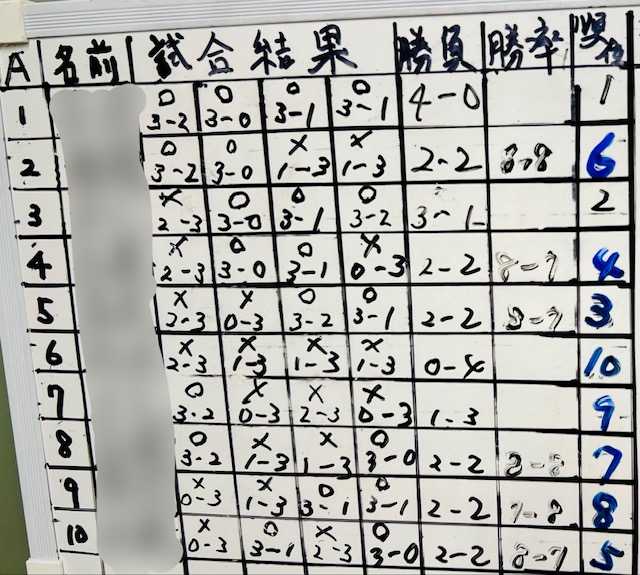 A 名前 試合結果 勝負 勝率 順位
1 ○ 3-2 ○ 3-0 ○ 3-1 ○ 3-1 4-0 1
2 ○ 3-2 ○ 3-0 × 1-3 × 1-3 2-2 8-8 6
3 × 2-3 ○ 3-0 ○ 3-1 ○ 3-2 3-1 2
4 × 2-3 ○ 3-0 ○ 3-1 × 0-3 2-2 8-7 4
5 × 2-3 × 0-3 ○ 3-2 ○ 3-1 2-2 3
6 × 2-3 × 1-3 × 1-3 × 1-3 0-4 10
7 ○ 3-2 × 0-3 × 2-3 × 0-3 1-3 9
8 ○ 3-2 × 1-3 × 1-3 ○ 3-0 2-2 8-8 7
9 × 0-3 × 1-3 ○ 3-1 ○ 3-1 2-2 7-8 8
10 × 0-3 ○ 3-1 × 2-3 ○ 3-0 2-2 8-7 5